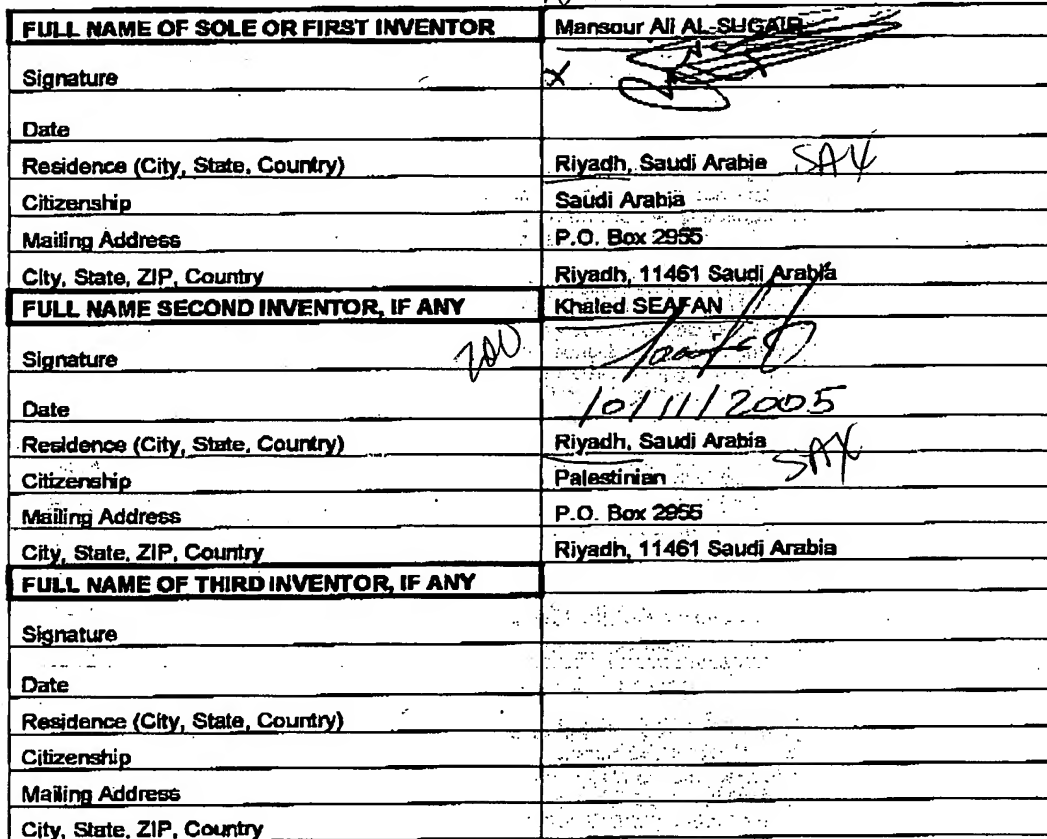 FULL NAME OF SOLE OR FIRST INVENTOR Mansour Ali AL-SUGAIR
Signature X
Date
Residence (City, State, Country) Riyadh, Saudi Arabia SAX
Citizenship Saudi Arabia
Mailing Address P.O. Box 2955
City, State, ZIP, Country Riyadh, 11461 Saudi Arabia
FULL NAME SECOND INVENTOR, IF ANY Khaled SEAFAN
Signature 200
Date 10/11/2005
Residence (City, State, Country) Riyadh, Saudi Arabia SAX
Citizenship Palestinian
Mailing Address P.O. Box 2955
City, State, ZIP, Country Riyadh, 11461 Saudi Arabia
FULL NAME OF THIRD INVENTOR, IF ANY
Signature
Date
Residence (City, State, Country)
Citizenship
Mailing Address
City, State, ZIP, Country